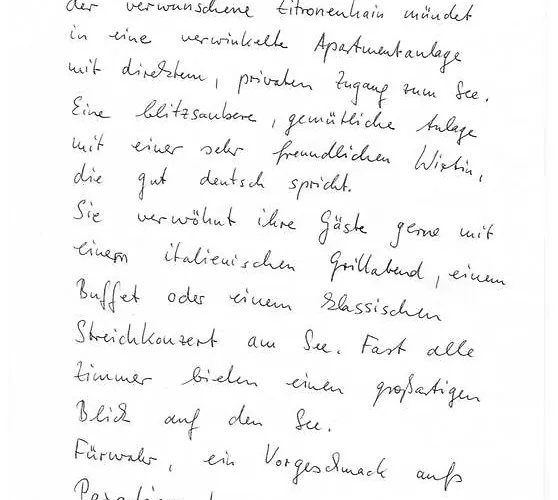 der verwunschene Zitronenhain mündet
in eine verwinkelte Apartmentanlage
mit direktem, privaten Zugang zum See.
Eine blitzsaubere, gemütliche Anlage
mit einer sehr freundlichen Wirtin,
die gut deutsch spricht.
Sie verwöhnt ihre Gäste gerne mit
einem italienischen Grillabend, einem
Buffet oder einem klassischen
Streichkonzert am See. Fast alle
Zimmer bieten einen großartigen
Blick auf den See.
Fürwahr, ein Vorgeschmack aufs